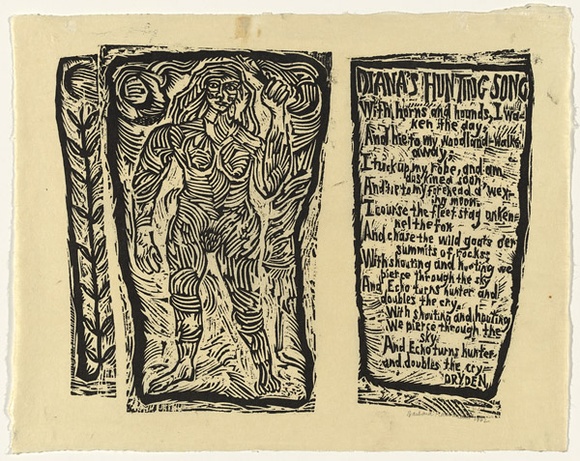 DIANA'S HUNTING SONG
With horns and hounds, I wa-
ken the day,
And hie to my woodland-walks
away;
I tuck up my robe, and am
buskined soon
And tie to my forehead a wex-
ing moon.
I course the fleet stag unken-
nel the fox
And chase the wild goats oer
summits of rocks
With shouting and hooting we
pierce through the sky
And Echo turns hunter and
doubles the cry.
With shouting and hooting
We pierce through the
sky
And Echo turns hunter
and doubles the cry
DRYDEN